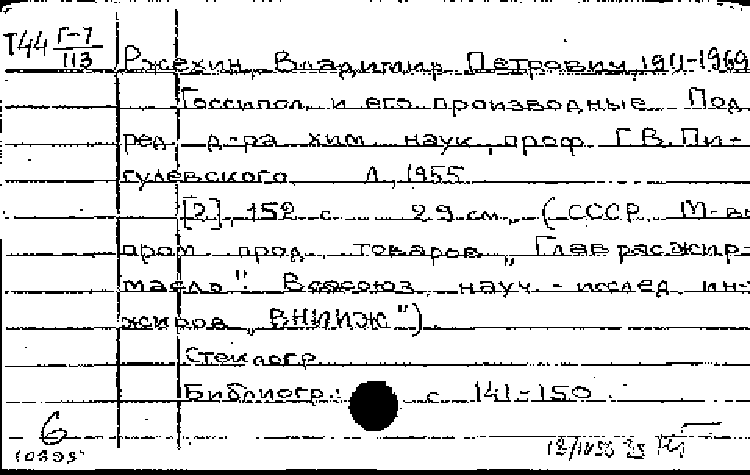 Т44 Г-7
113
Ржехин, Владимир Петрович, 1911-1969
Госсипол и его производные. Под
ред. д-ра хим. наук, проф. Г.В. Пи-
гулевского. Л., 1955.
[2], 152 с. 29 см. (СССР. М-во
пром. прод. товаров „Главрасжир-
масло". Всесоюз. науч.-исслед. ин-
жиров „ВНИИЖ")
Стеклогр.
Библиогр.: с. 141-150.
6